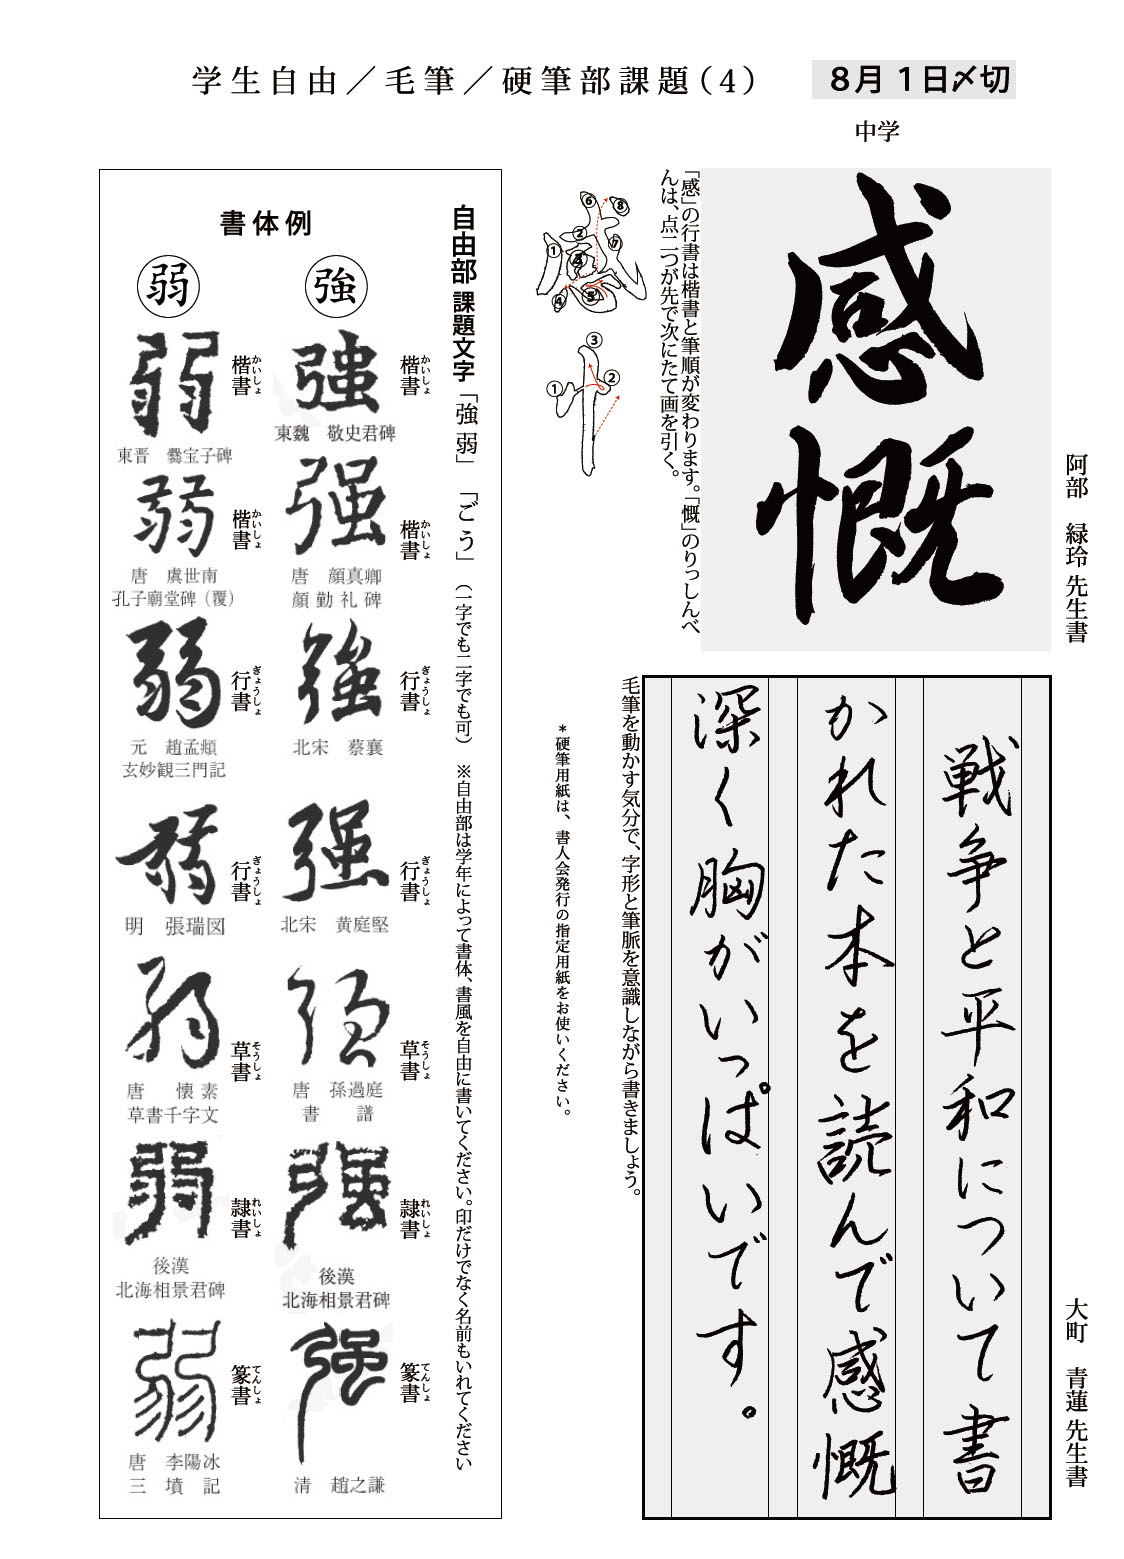 学生自由／毛筆／硬筆部課題（4）
８月１日〆切
中学
感慨
阿部　緑玲先生書
「感」の行書は楷書と筆順が変わります。「慨」のりっしんべ
んは、点二つが先で次にたて画を引く。
① ② ③ ④ ⑤ ⑥ ⑦ ⑧
① ② ③
戦争と平和について書
かれた本を読んで感慨
深く胸がいっぱいです。
大町　青蓮先生書
毛筆を動かす気分で、字形と筆脈を意識しながら書きましょう。
＊硬筆用紙は、書人会発行の指定用紙をお使いください。
自由部 課題文字「強弱」「ごう」（一字でも二字でも可）　※自由部は学年によって書体、書風を自由に書いてください。印だけでなく名前もいれてください
書体例
強
強
楷書 かいしょ
東魏　敬史君碑
强
楷書 かいしょ
唐　顔真卿
顔勤礼碑
強
行書 ぎょうしょ
北宋　蔡襄
强
行書 ぎょうしょ
北宋　黄庭堅
强
草書 そうしょ
唐　孫過庭
書　譜
強
隷書 れいしょ
後漢
北海相景君碑
強
篆書 てんしょ
清　趙之謙
弱
弱
楷書 かいしょ
東晋　爨宝子碑
弱
楷書 かいしょ
唐　虞世南
孔子廟堂碑（覆）
弱
行書 ぎょうしょ
元　趙孟頫
玄妙観三門記
弱
行書 ぎょうしょ
明　張瑞図
弱
草書 そうしょ
唐　懐素
草書千字文
弱
隷書 れいしょ
後漢
北海相景君碑
弱
篆書 てんしょ
唐　李陽冰
三墳記